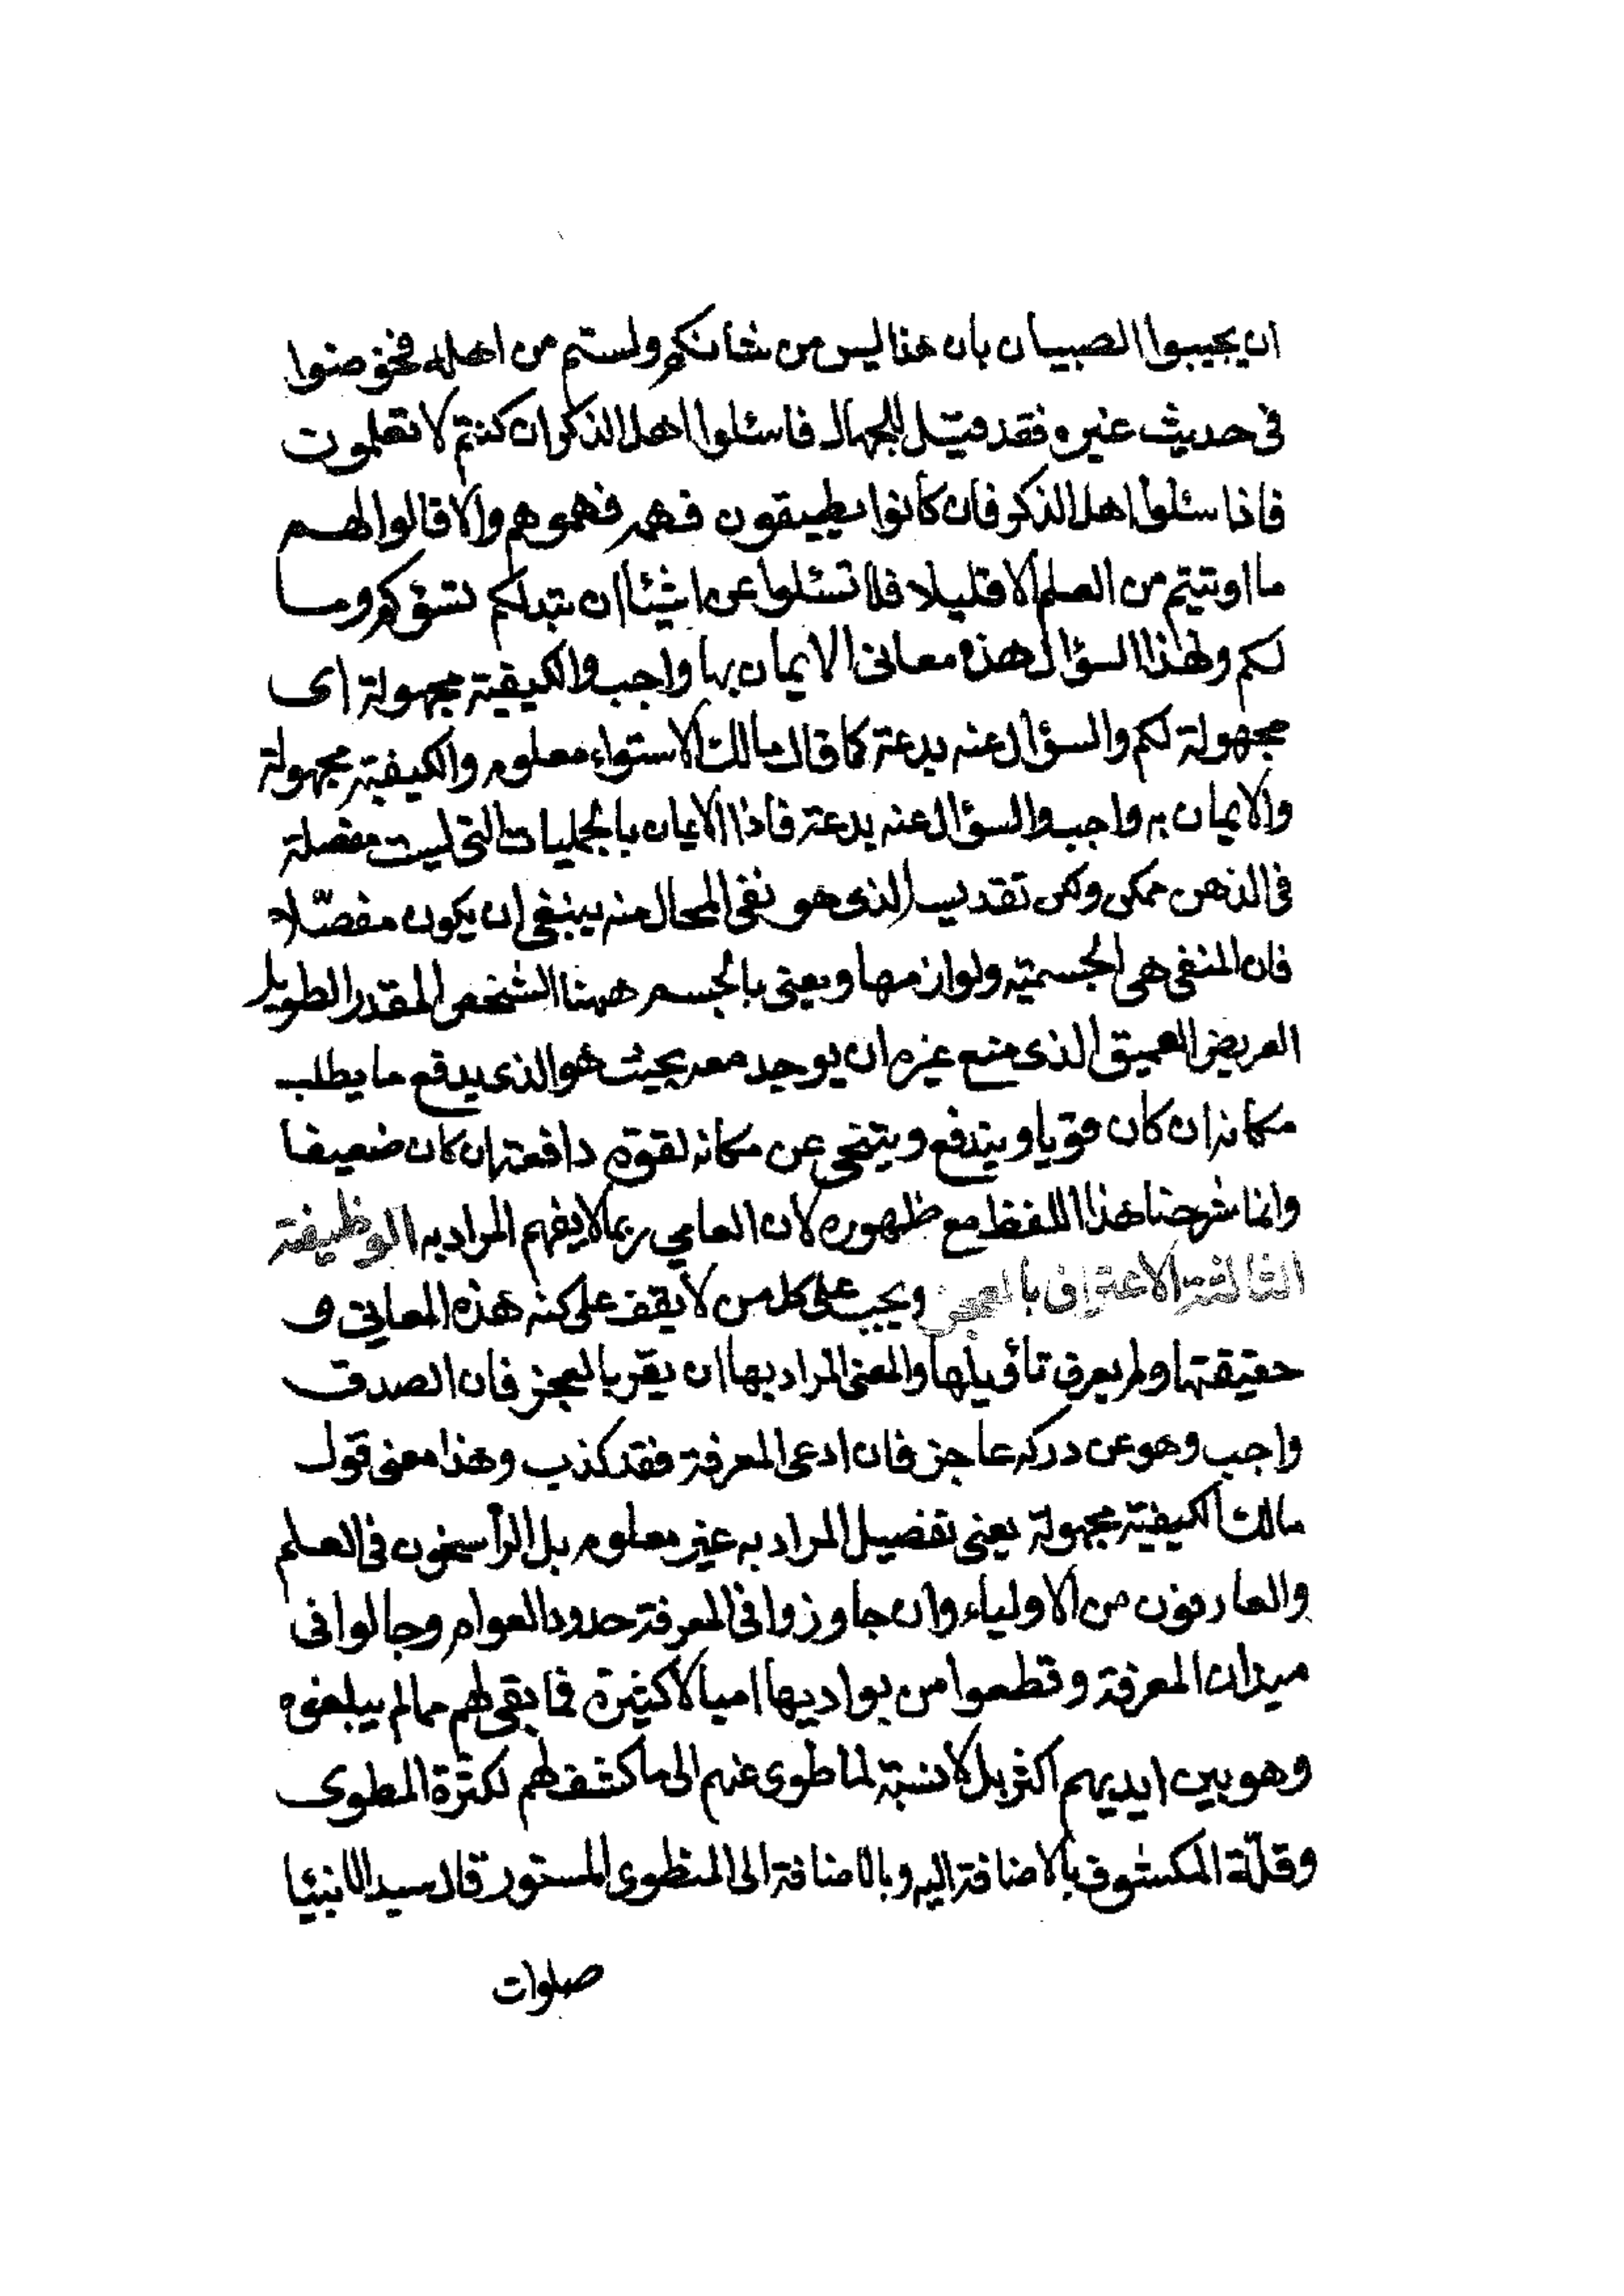 ان يجيبوا الصبيان بان هذا ليس من شانكم ولستم من اهله فخوضوا
فى حديث غيره فقد قيل للجهال فاسئلوا اهل الذكر ان كنتم لا تعلمون
فاذا سئلوا اهل الذكر فان كانوا يطيقون فهمه فهموهم والا قالوا لهم
ما اوتيتم من العلم الا قليلا فلا تسئلوا عن اشيئا ان تبدلكم تسؤكم وما
لكم ولهذا السؤال هذه معانى الايمان بها واجب والكيفية مجهولة اى
مجهولة لكم والسؤال عنه بدعة كما قال مالك الاستواء معلوم والكيفية مجهولة
والايمان به واجب والسؤال عنه بدعة فاذا الايمان بالجمليات التى ليست مفصلة
فى الذهن ممكن ولكن تقديسه الذى هو نفى المحال منه ينبغى ان يكون مفصّلا
فان المنفى هى الجسمية ولوازمها ويعنى بالجسم ههنا الشخص المقدر الطويل
العريض العميق الذى منع غيره ان يوجد معه بحيث هو الذى يدفع ما يطلب
مكانه ان كان قويا ويندفع ويتنحى عن مكانه لقوة دافعته ان كان ضعيفا
وانما شرحنا هذا اللفظ مع ظهوره لان العامي ربما لا يفهم المراد به الوظيفة
الثالثة الاعتراف بالعجز ويجب على كل من لا يقف على كنه هذه المعاني و
حقيقتها ولم يعرف تاؤيلها والمعنى المراد بها ان يقر بالعجز فان الصدق
واجب وهو عن دركه عاجز فان ادعى المعرفة فقد كذب وهذا معنى قول
مالك الكيفية مجهولة يعنى تفصيل المراد به غير معلوم بل الرأسخون فى العلم
والعارفون من الاولياء وان جاوزوا فى المعرفة حدود العوام وجالوا فى
ميدان المعرفة وقطعوا من بواديها اميالا كثيرة فما بقى لهم مما لم يبلغوه
وهو بين ايديهم اكثر بل لا نسبة لما طوى عنهم الى ما كشف لهم لكثرة المطوى
وقلّة المكشوف بالاضافة اليه وبالاضافة الى المنطوى المستور قال سيد الانبيا
صلوات